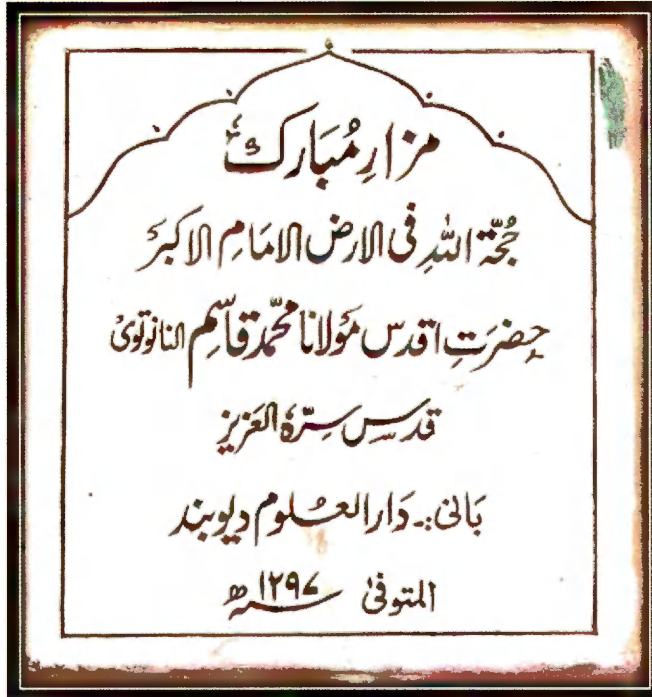 مزارِ مُبارک
حُجّۃ اللہِ فی الارض الامَامِ الاکبرَ
حضرَتِ اقدس مَولانا محمّد قاسِم النانوتویؒ
قدس سِرّہُ العَزیز
بَانی:۔ دَارالعُلوم دیوبند
المتوفیٰ سنہ ۱۲۹۷ھ